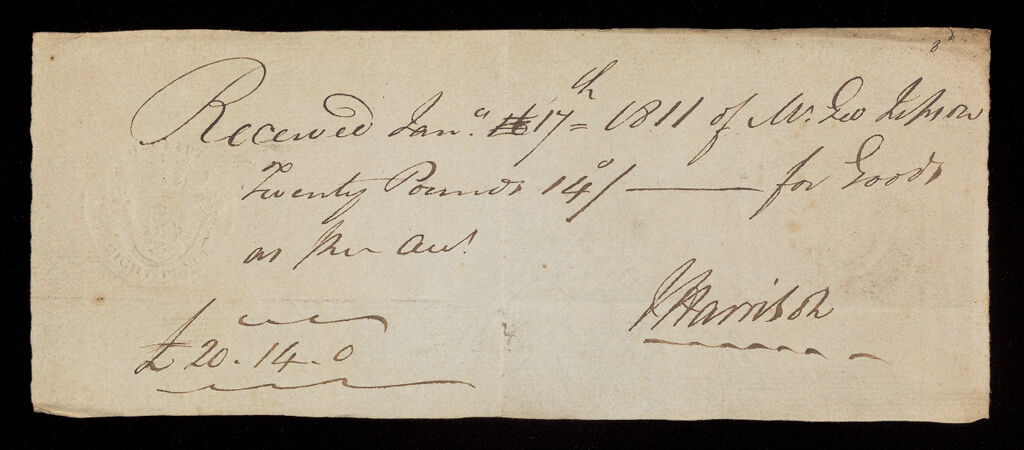 Received Jany. 17th 1811 of Mr. Geo Jepson
Twenty Pounds 14/ —— for Goods
as Per Act.
J Harrison
£ 20 . 14 . 0